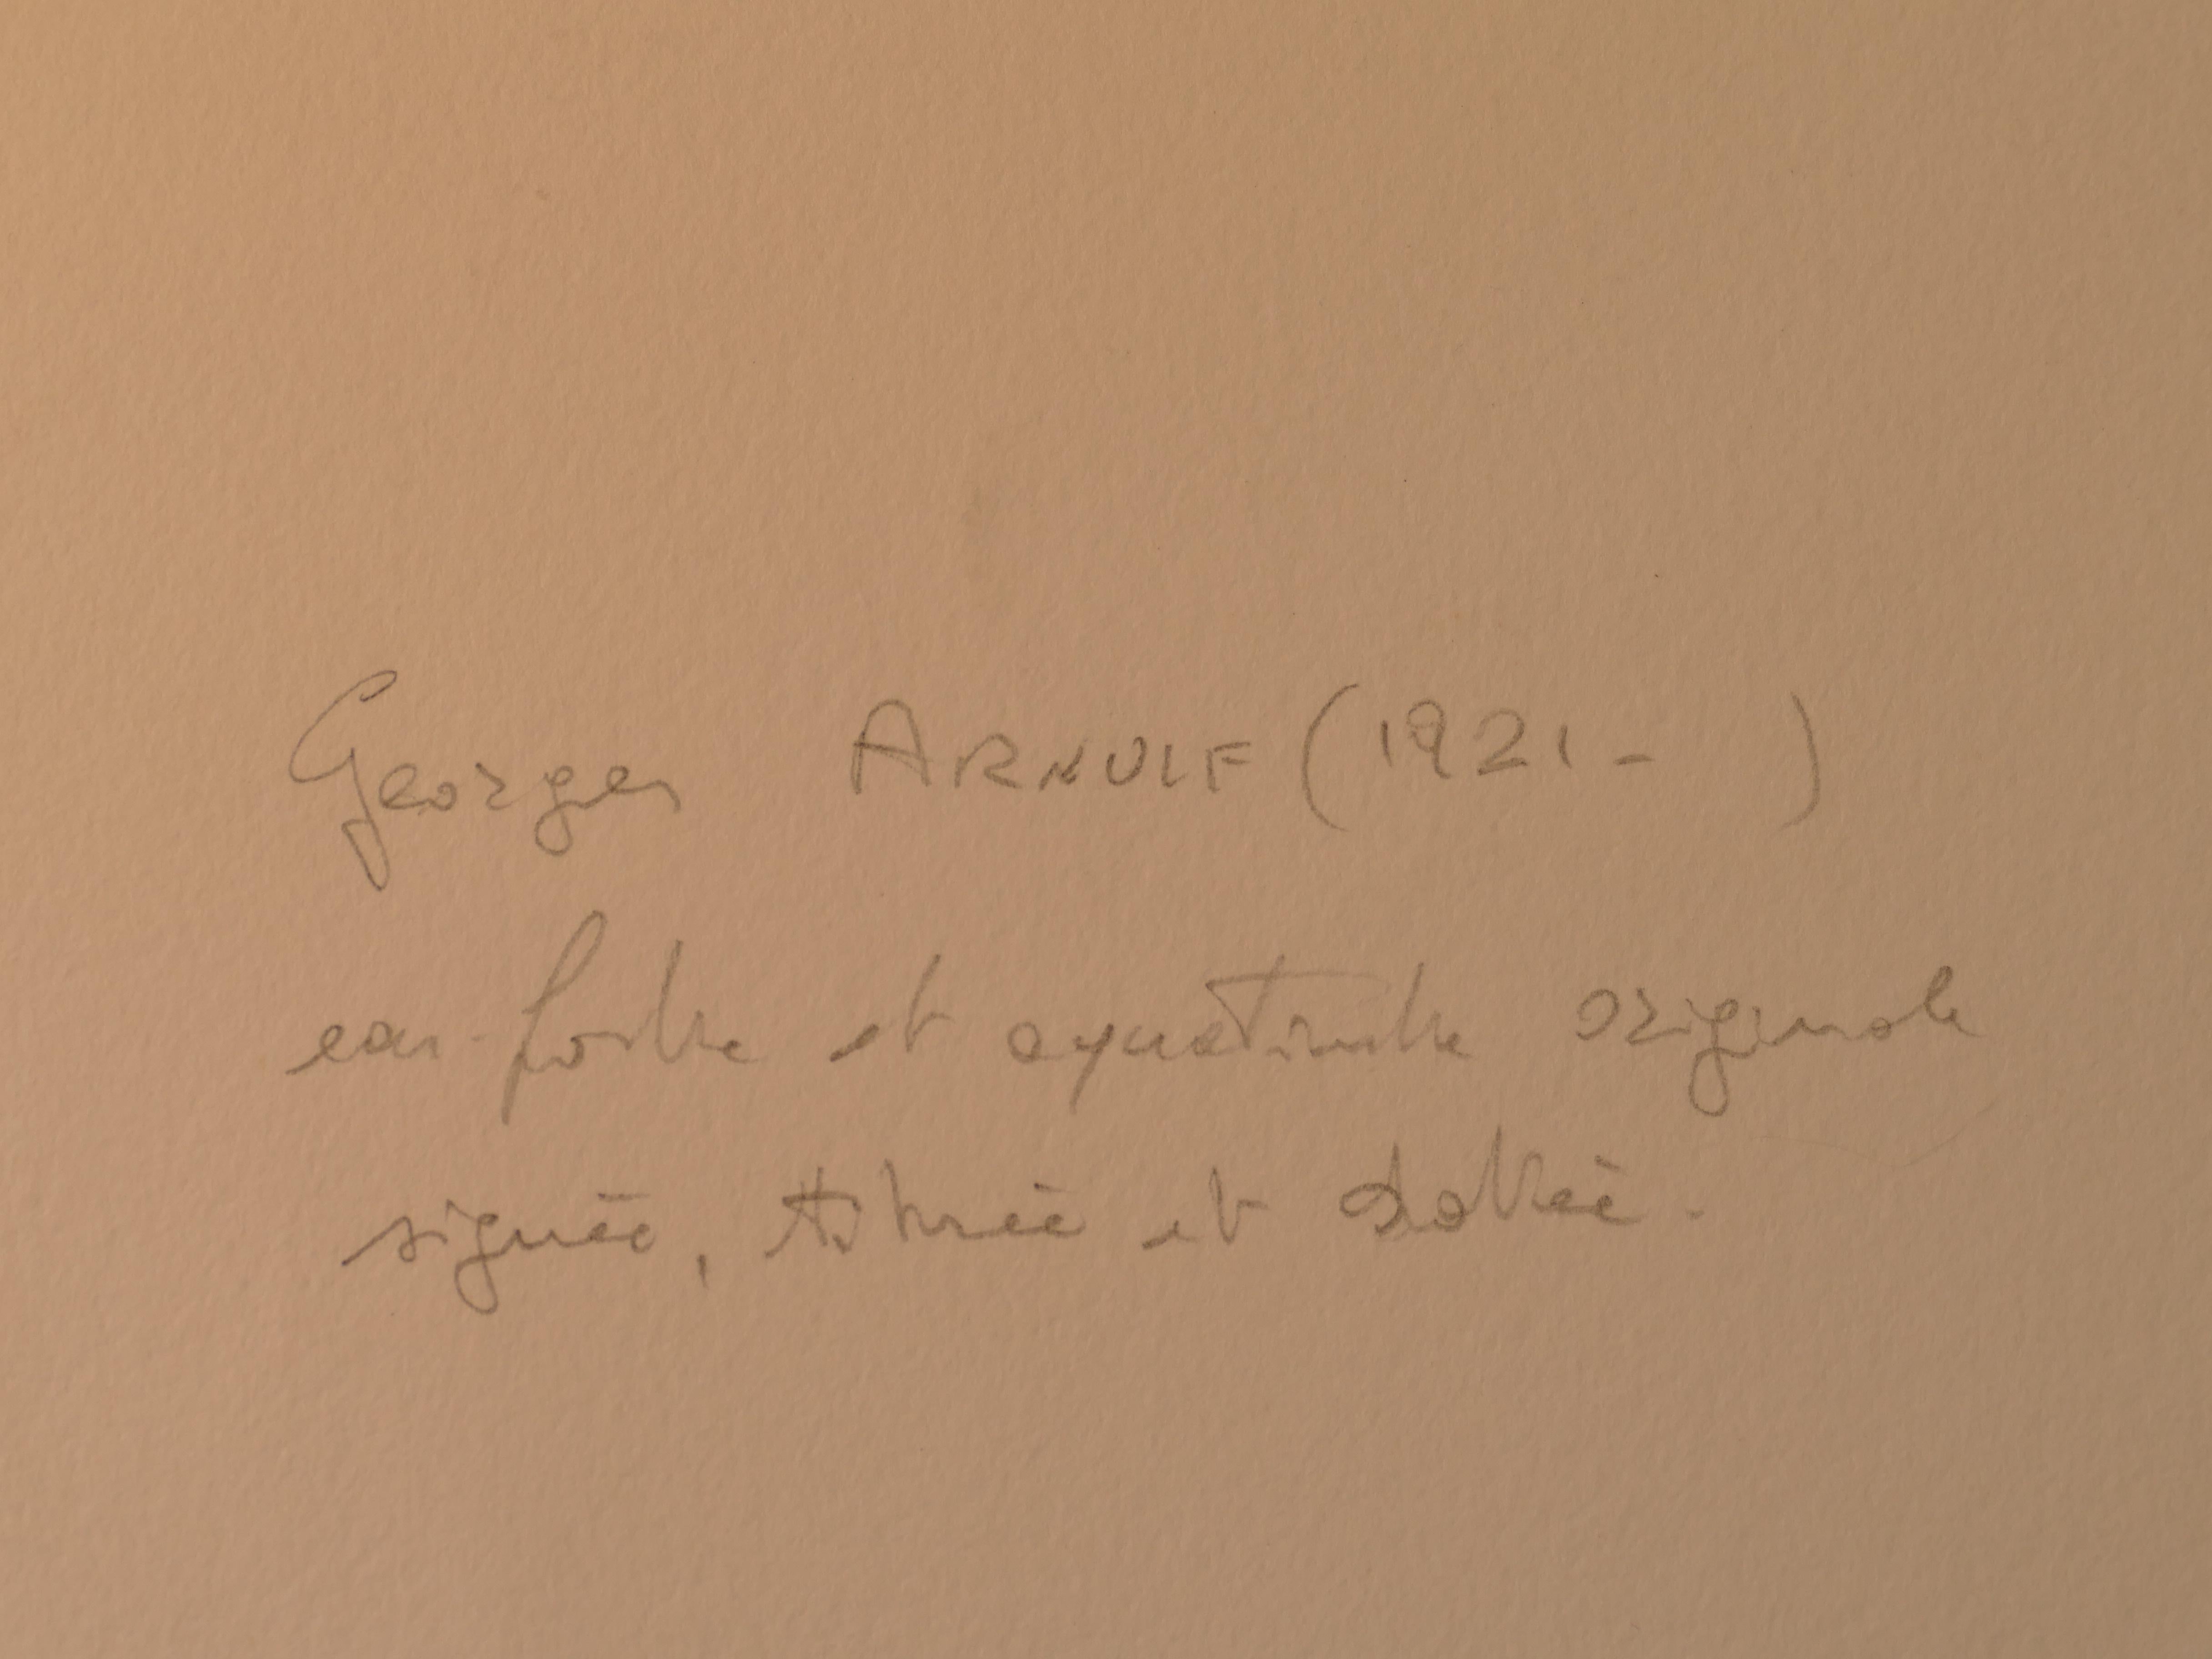 Georges ARNULF (1921- )
eau-forte et aquatinte originale
signée, titrée et datée.